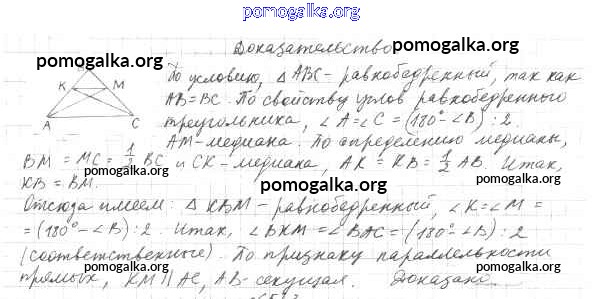 pomogalka.org
Доказательство
pomogalka.org
pomogalka.org
K M
A C
По условию, Δ ABC - равнобедренный, так как
AB=BC. По свойству углов равнобедренного
треугольника, ∠A=∠C = (180°-∠B) : 2.
AM-медиана. По определению медианы,
BM = MC = 1/2 BC и CK - медиана, AK = KB = 1/2 AB. Итак,
KB = BM.
pomogalka.org
pomogalka.org
pomogalka.org
Отсюда имеем: Δ KBM - равнобедренный, ∠K=∠M =
= (180°-∠B) : 2. Итак, ∠BKM = ∠BAC = (180°-∠B) : 2
(соответственные). По признаку параллельности
прямых, KM || AC, AB-секущая. Доказано.
pomogalka.org
pomogalka.org